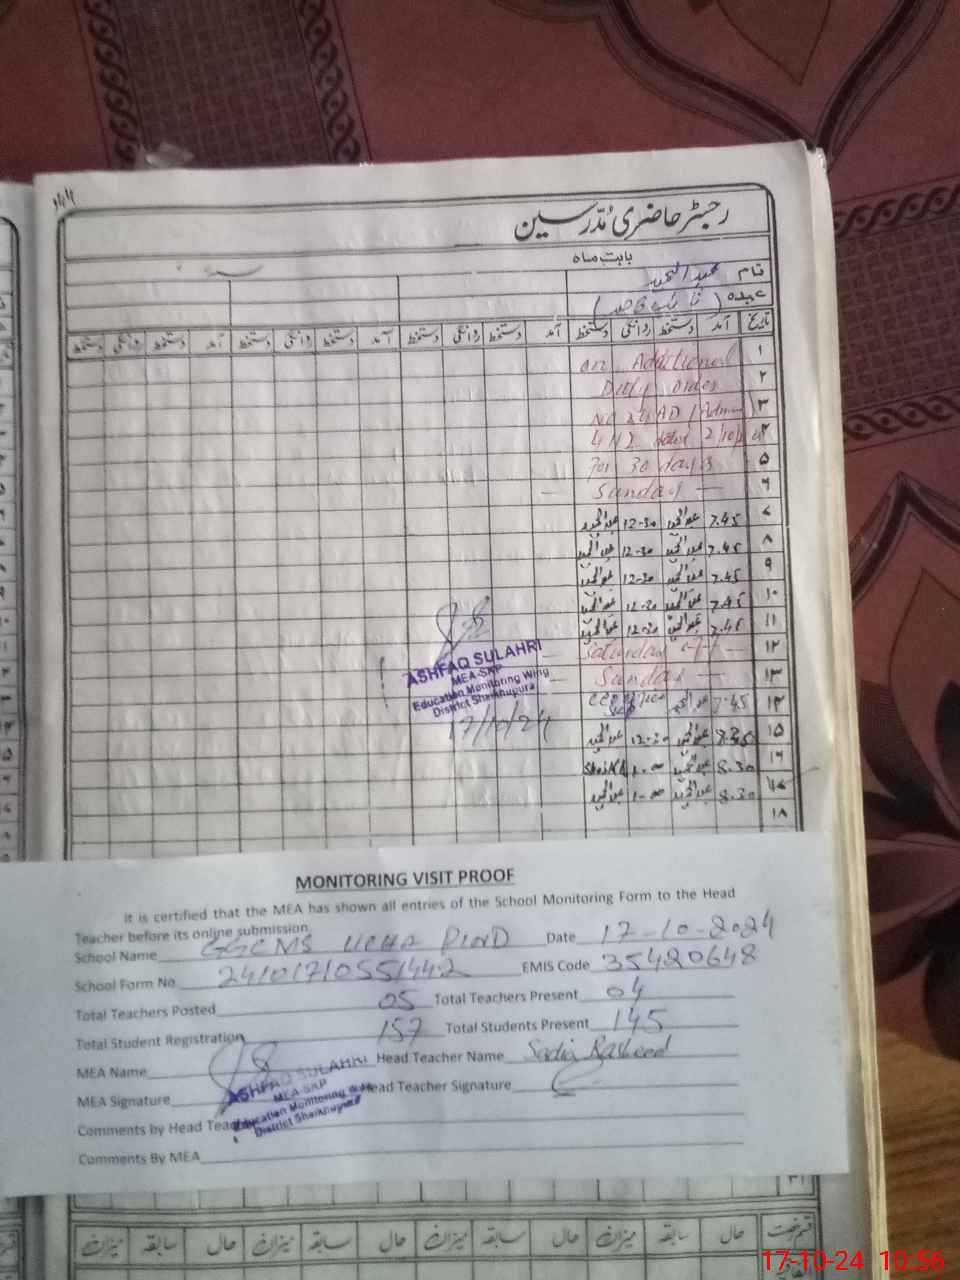 رجسٹر حاضری مُدّرسین
بابت ماہ
نام عبدالحمید
عہدہ ( نائب قاصد )
تاریخ آمد دستخط روانگی دستخط آمد دستخط روانگی دستخط آمد دستخط روانگی دستخط آمد دستخط روانگی دستخط
۱ on Additional
۲ Duty order
۳
۴ dated
۵ For 30 days
۶ Sunday —
۷ 7.45 عبدالحمید 12-30 عبدالحمید
۸ 7.45 عبدالحمید 12-30 عبدالحمید
۹ 7.45 عبدالحمید 12-30 عبدالحمید
۱۰ 7.45 عبدالحمید 12-30 عبدالحمید
۱۱ 7.45 عبدالحمید 12-30 عبدالحمید
۱۲ Saturday
۱۳ Sunday —
۱۴ 7-45 عبدالحمید
۱۵ عبدالحمید 12-30 عبدالحمید
۱۶ 8.30 عبدالحمید 1-00
۱۷ 8.30 عبدالحمید 1-00 عبدالحمید
۱۸
ASHFAQ SULAHRI
MEA-SKP
Education Monitoring Wing
District Sheikhupura
17/10/24
MONITORING VISIT PROOF
It is certified that the MEA has shown all entries of the School Monitoring Form to the Head
Teacher before its online submission
School Name GGCMS UCHA PIND Date 17-10-2024
School Form No. 24101710551442 EMIS Code 35420648
Total Teachers Posted 05 Total Teachers Present 04
Total Student Registration 157 Total Students Present 145
MEA Name Head Teacher Name Sadia Rasheed
MEA Signature Head Teacher Signature
ASHFAQ SULAHRI
MEA-SKP
Education Monitoring Wing
District Sheikhupura
Comments by Head Teac
Comments By MEA
۳۱
قسم رخصت حال سابقہ میزان حال سابقہ میزان حال سابقہ میزان حال سابقہ میزان
17-10-24 10:56